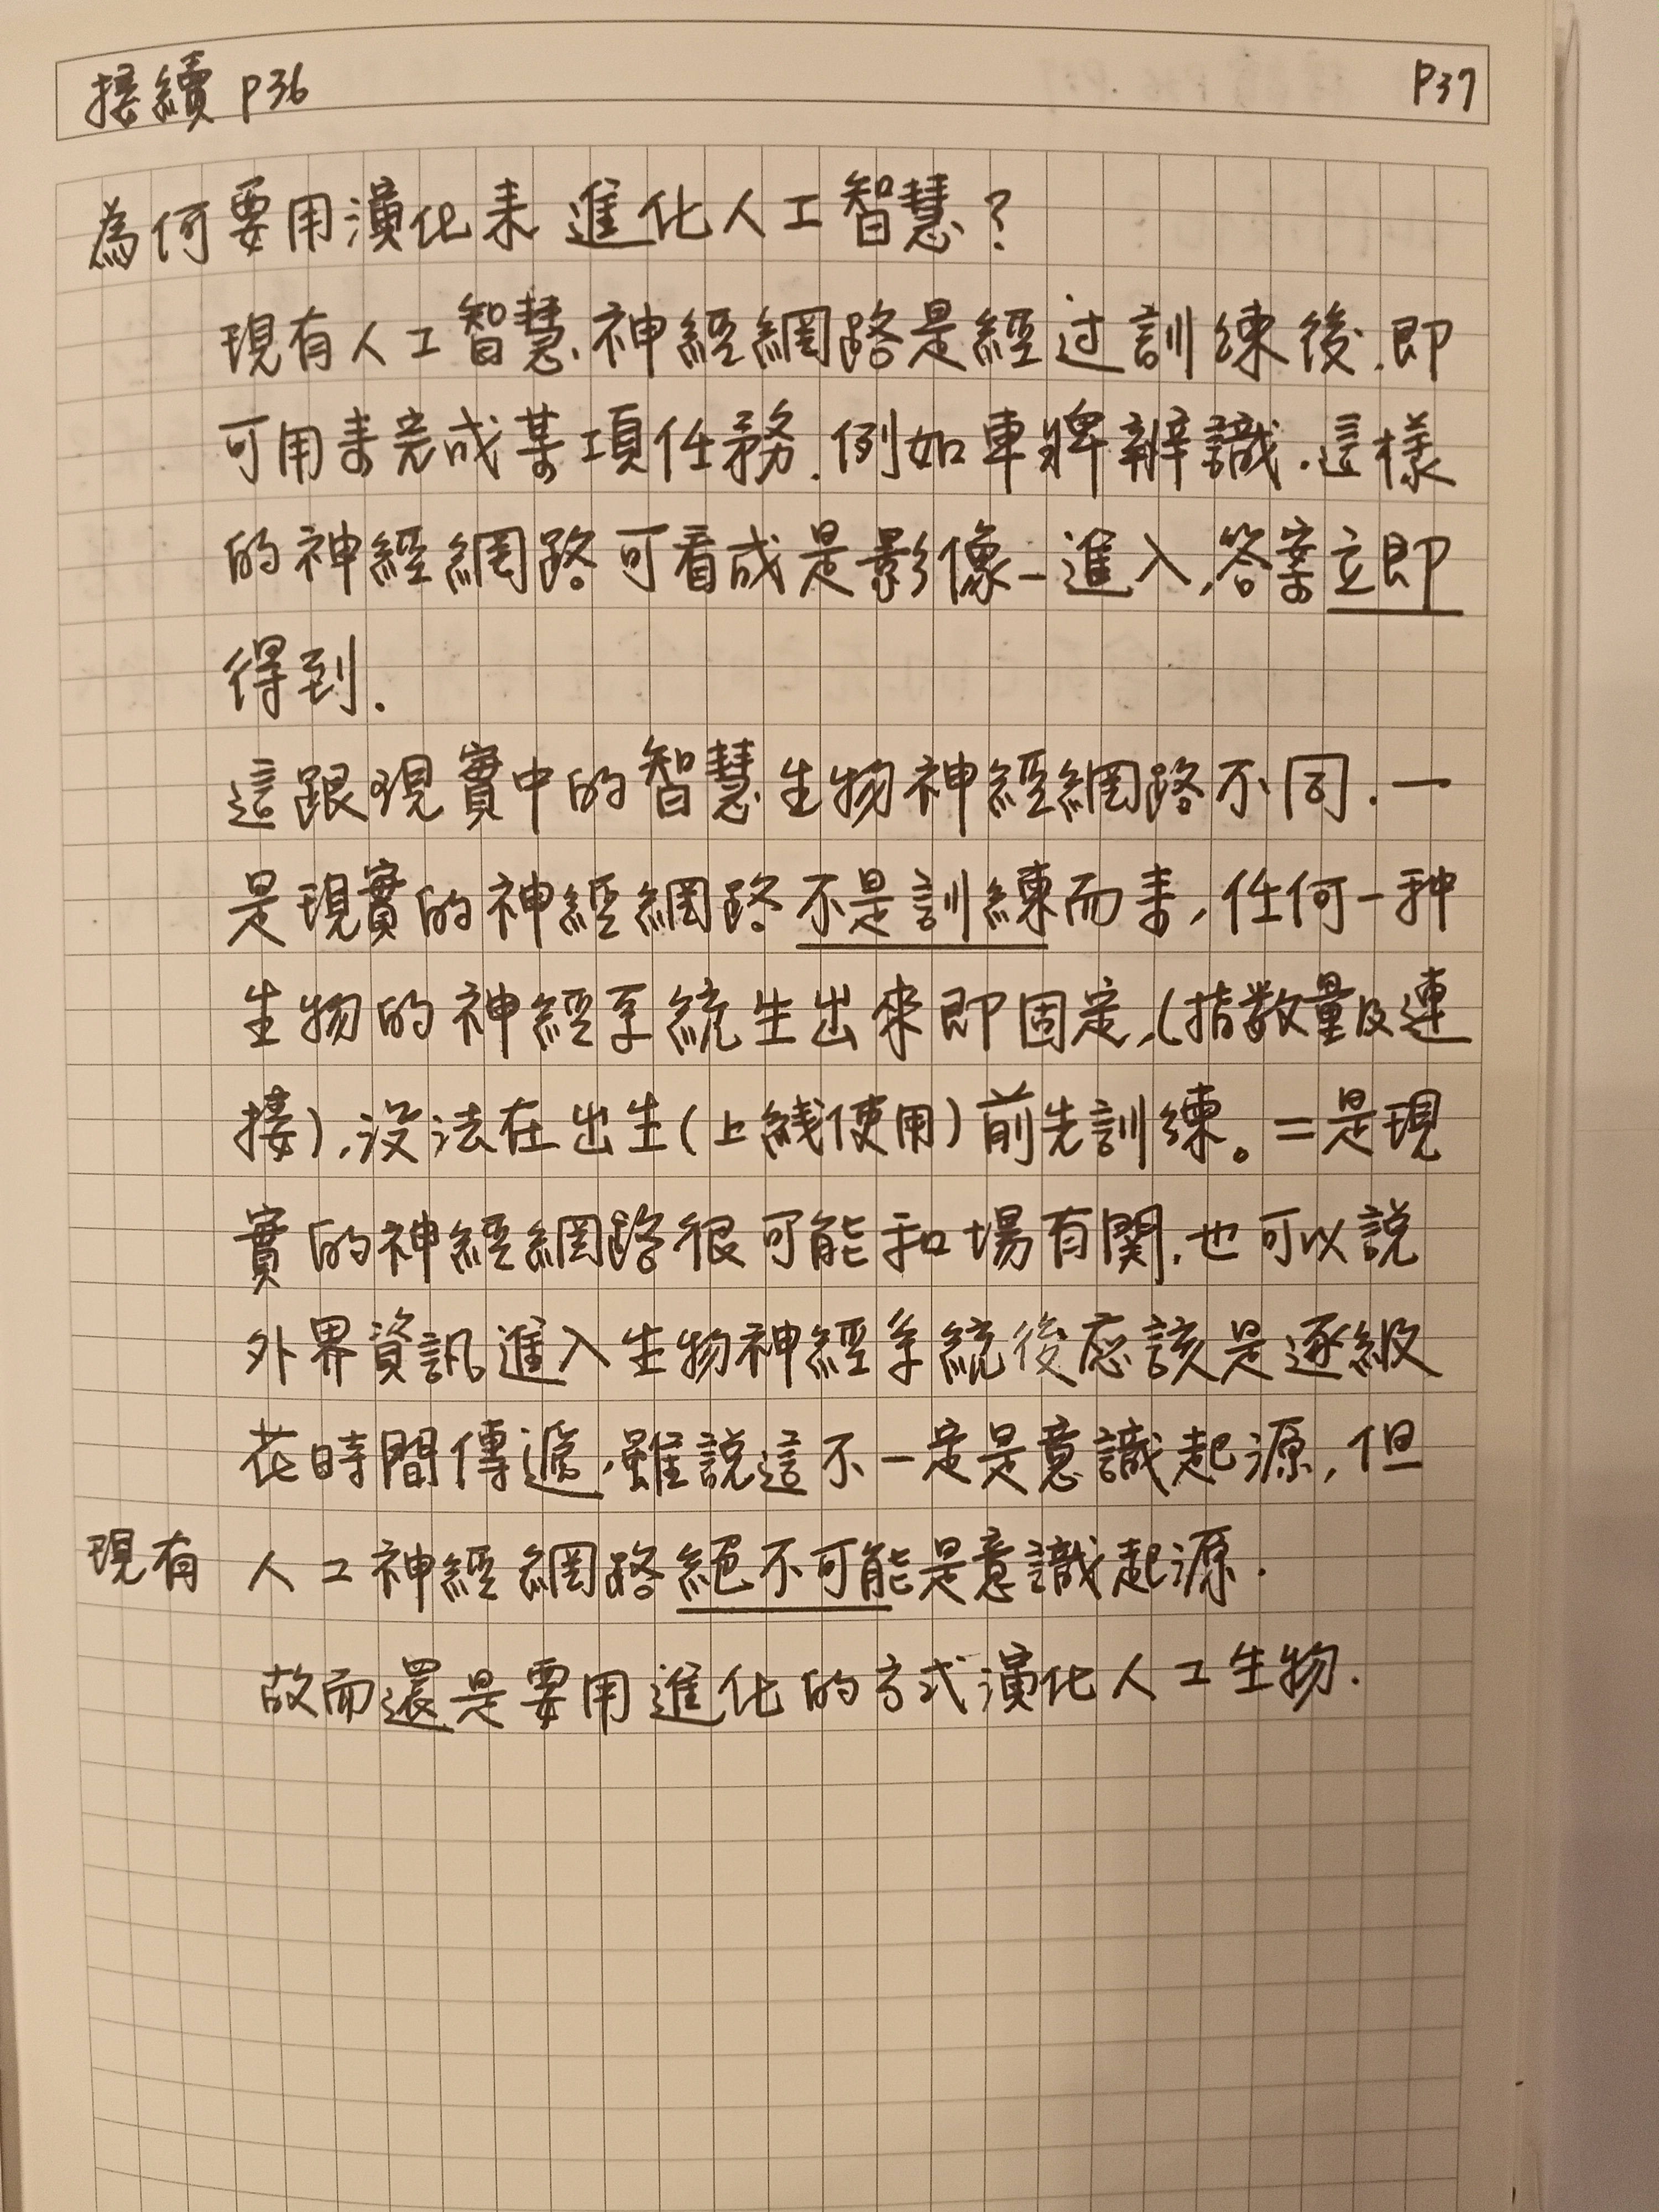 接續 P36
P37
為何要用演化来進化人工智慧?
現有人工智慧神經網路是經过訓練後,即
可用来完成某項任務.例如車牌辨識.這樣
的神經網路可看成是影像一進入,答案立即
得到.
這跟現實中的智慧生物神經網路不同.一
是現實的神經網路不是訓練而来,任何一种
生物的神經系統生出來即固定,(指数量及連
接),沒法在出生(上綫使用)前先訓練。二是現
實的神經網路很可能和場有関.也可以說
外界資訊進入生物神經系統後應該是逐級
花時間傳遞,雖說這不一定是意識起源,但
現有人工神經網路絕不可能是意識起源.
故而還是要用進化的方式演化人工生物.